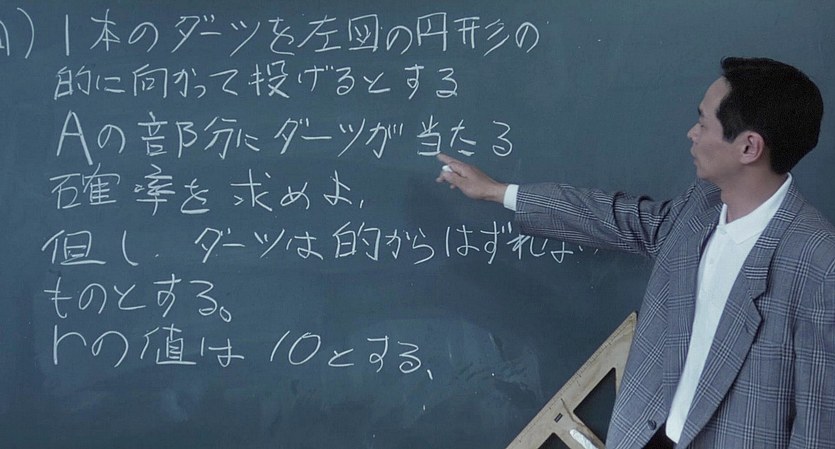 1本のダーツを左図の円形の
的に向かって投げるとする
Aの部分にダーツが当たる
確率を求めよ.
但し.ダーツは的からはずれない
ものとする。
rの値は10とする.